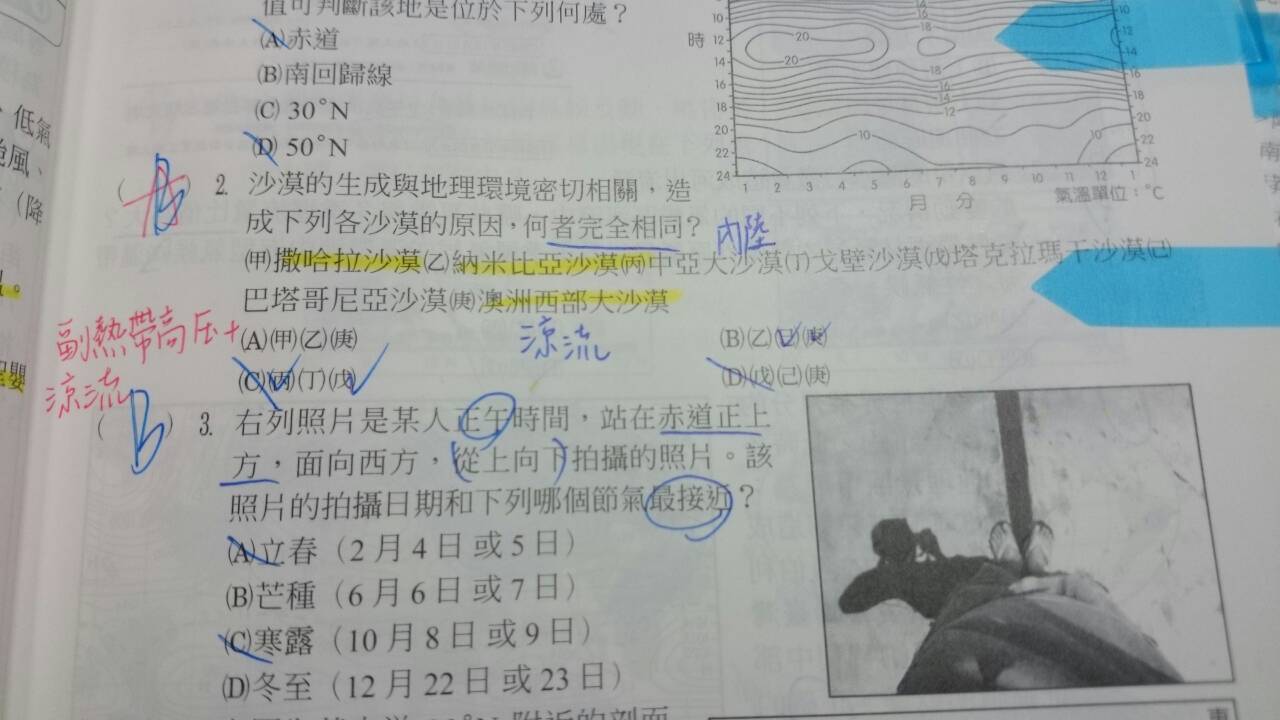 值可判斷該地是位於下列何處？
(A)赤道
(B)南回歸線
(C) 30°N
(D) 50°N
時
10
12
14
16
18
20
22
24
1 2 3 4 5 6 7 8 9 10 11 12 1
月 分
氣溫單位：°C
20
20
18
14
16
18
16
14
12
10
10
10
12
14
16
18
20
22
24
、低氣
風、
（降
B
( ) 2. 沙漠的生成與地理環境密切相關，造
成下列各沙漠的原因，何者完全相同？
內陸
(甲)撒哈拉沙漠(乙)納米比亞沙漠(丙)中亞大沙漠(丁)戈壁沙漠(戊)塔克拉瑪干沙漠(己)
巴塔哥尼亞沙漠(庚)澳洲西部大沙漠
副熱帶高压+
涼流
涼流
(A)(甲)(乙)(庚)
(B)(乙)(己)(庚)
(C)(丙)(丁)(戊)
(D)(戊)(己)(庚)
( B ) 3. 右列照片是某人正午時間，站在赤道正上
方，面向西方，從上向下拍攝的照片。該
照片的拍攝日期和下列哪個節氣最接近？
(A)立春（2月4日或5日）
(B)芒種（6月6日或7日）
(C)寒露（10月8日或9日）
(D)冬至（12月22日或23日）